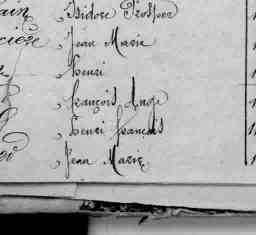 ain , Isidore Prosper
, Jean Marie
, Henri
, François Ange
, Henri François
, Jean Marie